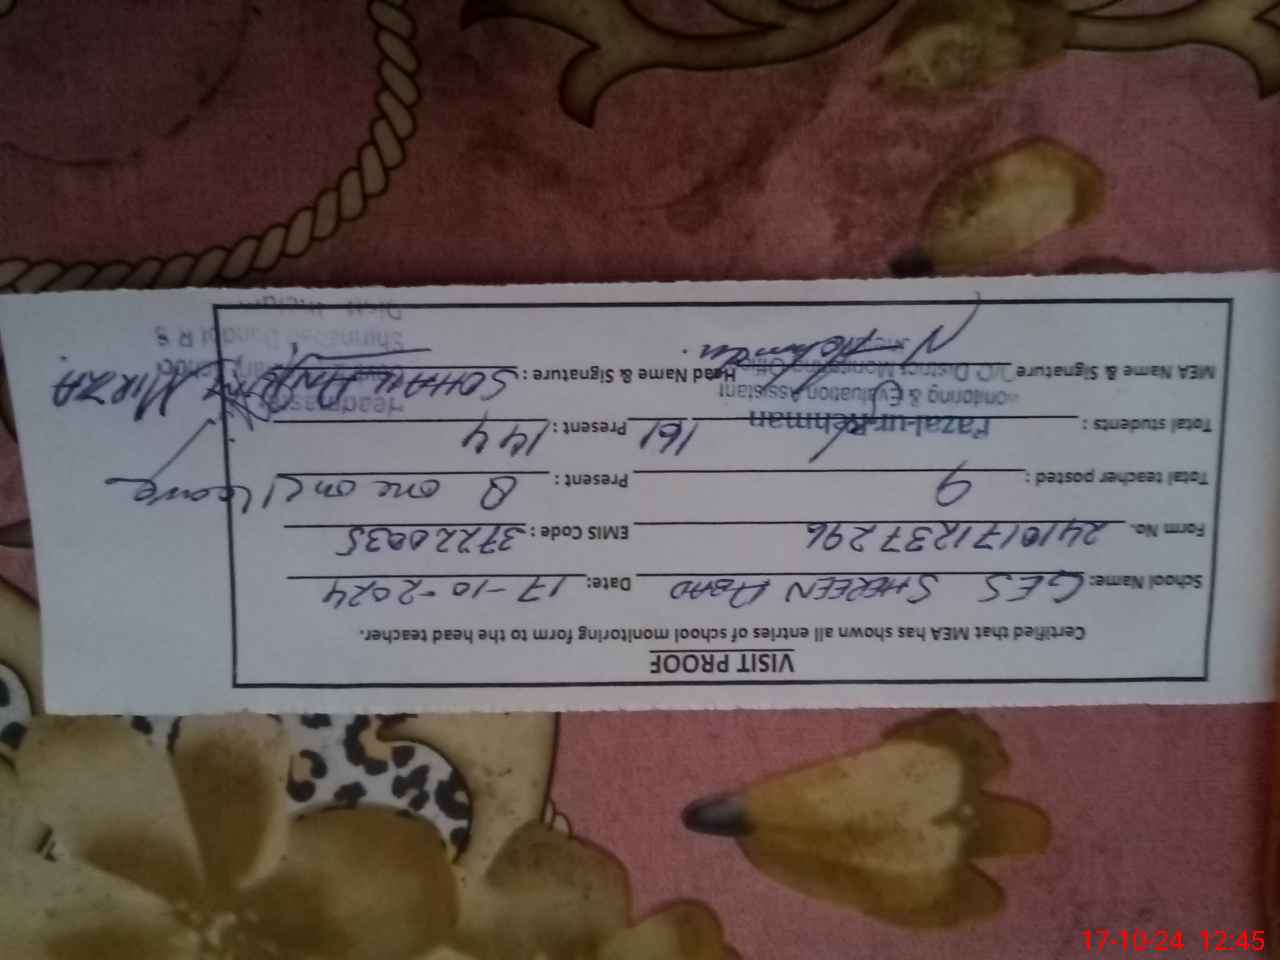 VISIT PROOF
Certified that MEA has shown all entries of school monitoring form to the head teacher.
School Name: GES SHEREEN ABAD Date: 17-10-2024
Form No. 2410171237296 EMIS Code: 37220035
Total teacher posted: 9 Present: 8 one on leave
Total students: 161 Present: 144
Fazal-ur-Rehman
Monitoring & Evaluation Assistant
O/O District Monitoring Office
MEA Name & Signature Head Name & Signature: SOHAIL MIRZA
Headmaster
17-10-24 12:45